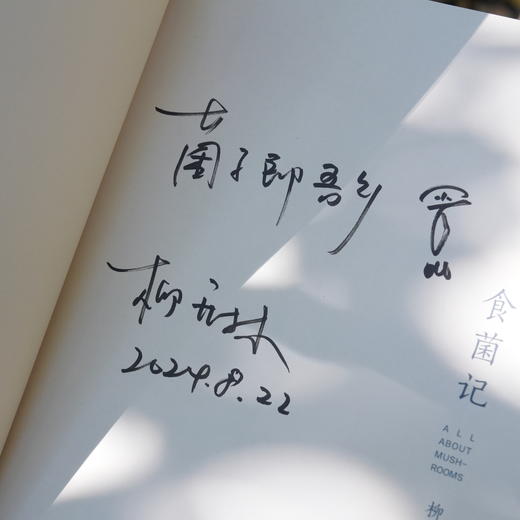 菌子即吾乡
柳开林
2024.8.22
食菌记
ALL
ABOUT
MUSH-
ROOMS
柳